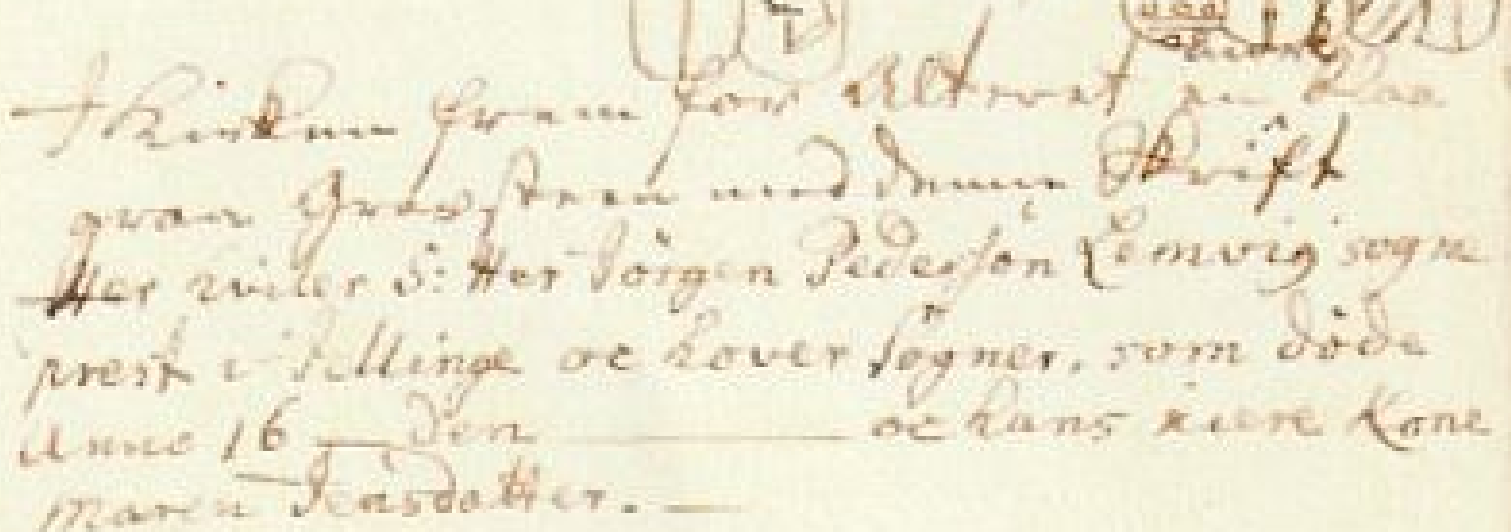 I Kirken frem for Alteret en blaa
graa Gravsteen med denne Skrift
Her hviler S: Her Jörgen Pedersön Lemvig sogne
prest i Jellinge oc Hover Sogner, som döde
Anno 16 — den — oc hans kiere Kone
Maren Jensdotter. —